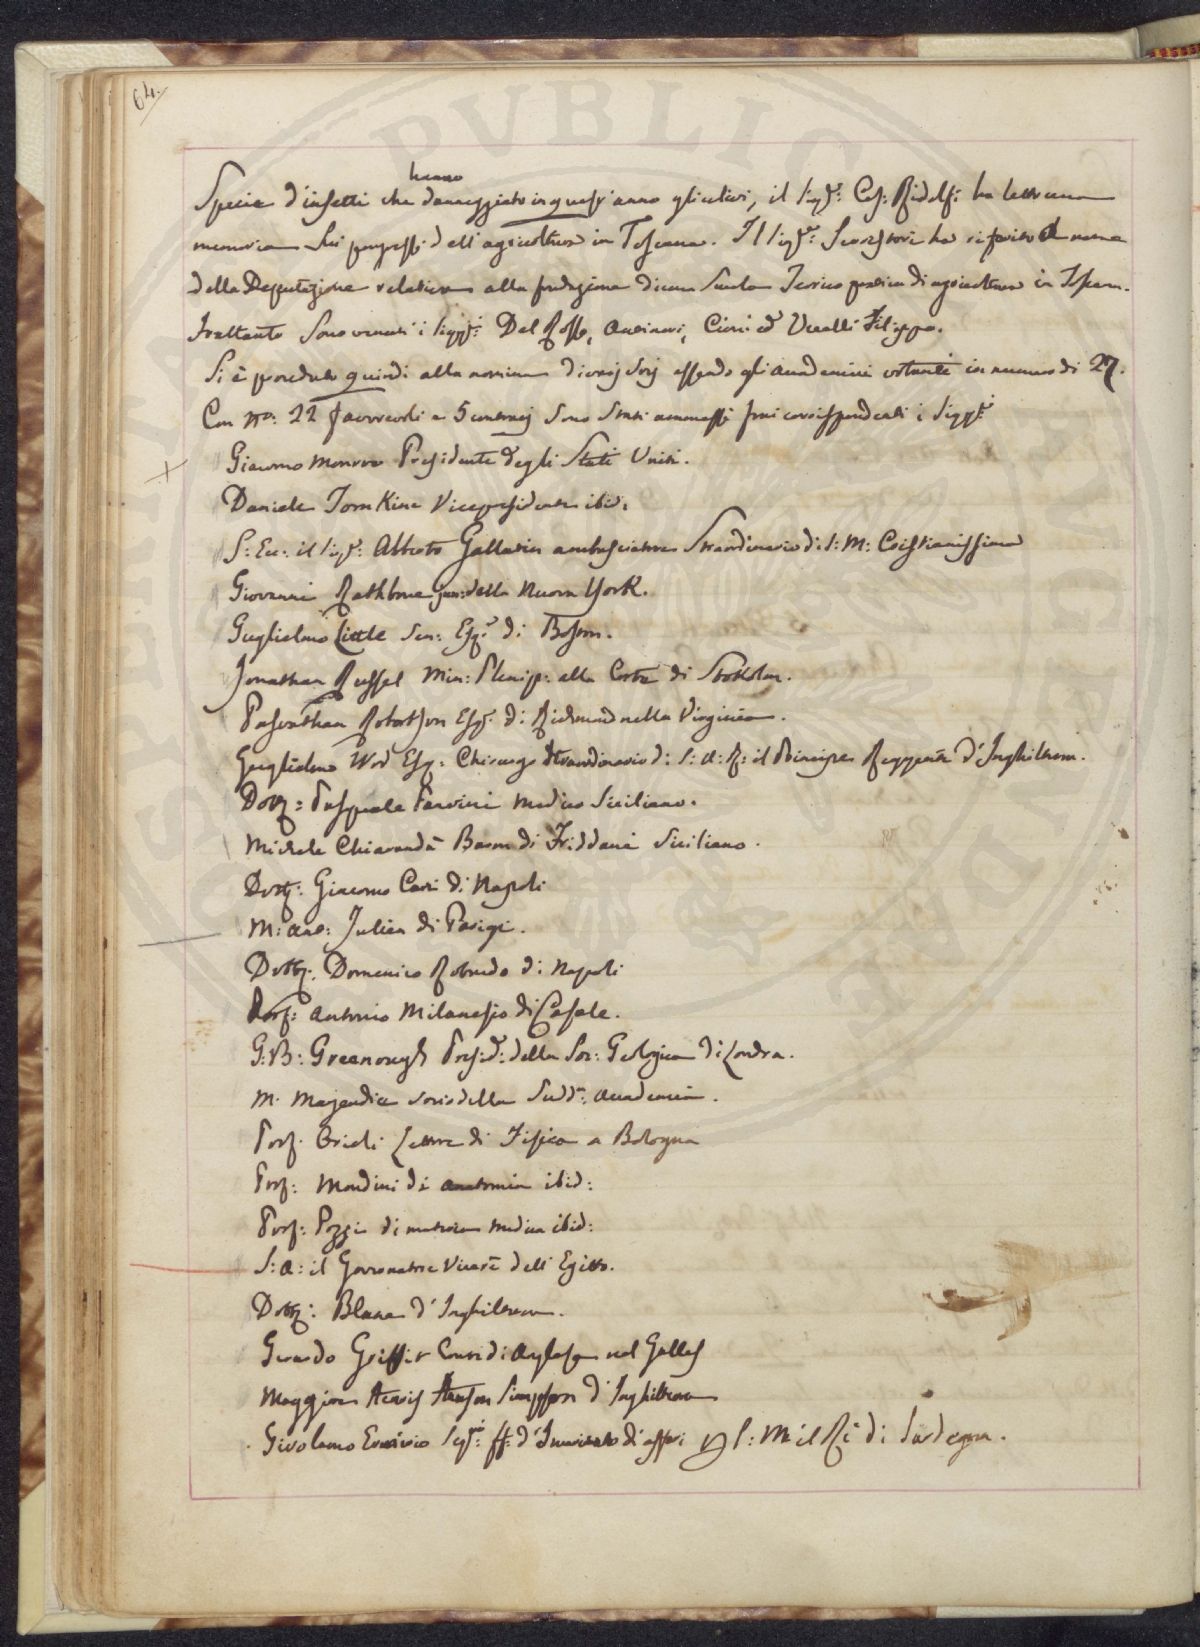 64.
hanno
Specie d'insetti che danneggiato in quest'anno gli ulivi, il Sigr: Cos: Ridolfi ha letto una
memoria sui progressi dell'agricoltura in Toscana. Il Sigr: Segretario ha riferito a nome
della Deputazione relativa alla fondazione di una Scuola Teorico pratica di agricoltura in Toscana.
Trattanto sono venuti i Sigg:ri Del Rosso, Cioni ed Uccelli Filippo.
Si è proceduto quindi alla nomina di varj Socj essendo gli Accademici votanti in numero di 27.
Con No: 22 favorevoli e 5 contrarj sono stati ammessi frai corrispondenti i Sigg:ri
Giacomo Monroe Presidente degli Stati Uniti.
Daniele Tomkins Vicepresidente ibid:
S: Ec: il Sigr: Alberto Gallatin ambasciatore Straordinario di S: M: Cristianissima
Giovanni Rathbone jun: della Nuova York.
Guglielmo Little Sen: Esqr: di Boston.
Jonathan Russel Min: Plenip: alla Corte di Stokolm.
Robertson Esqr: di Richmond nella Virginia.
Guglielmo Wod Esq: Chirurgo Straordinario di S: A: R: il Principe Reggente d'Inghilterra.
Dott: Pasquale Panvini Medico Siciliano.
Michele Chiarandà Baron di Friddani Siciliano.
Dott: Giacomo Ceri di Napoli
M: Ant: Julien di Parigi.
Dott: Domenico di Napoli
Prof: Antonio Milanesio di Casale.
G:B: Greenough Presid: della Soc: Geologica di Londra.
M. Majendie socio della Sudd: Accademia.
Prof. Orioli Lettore di Fisica a Bologna
Prof: Mondini di anatomia ibid:
Prof: Pozzi di materia medica ibid:
S: A: il Governatore Vicerè dell'Egitto.
Dott: Blane d'Inghilterra.
Griffit di nel Galles
Maggiore d'Inghilterra
Girolamo Sigr: ff: d'Incaricato di affari S: M: il Rè di Sardegna.